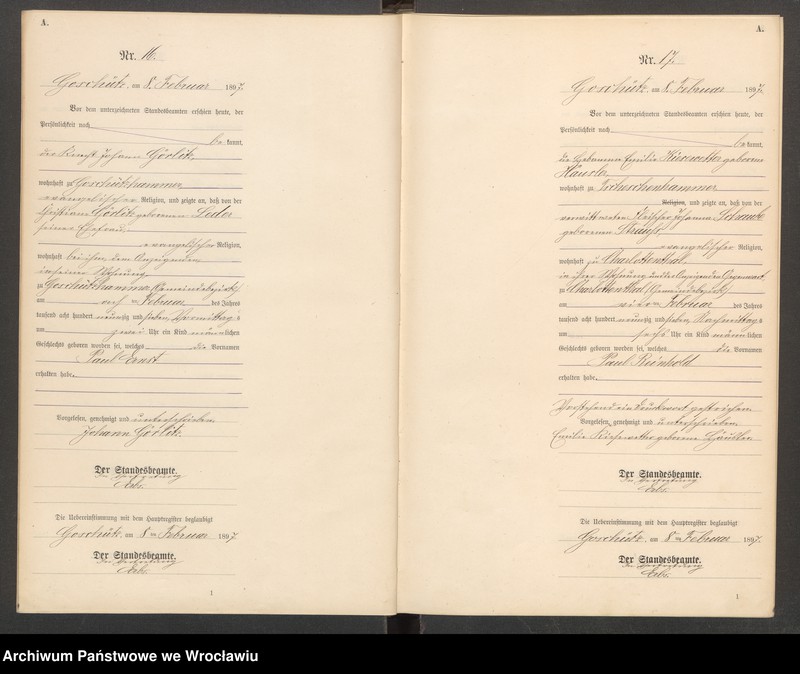 A.
Nr. 16.
Goschütz, am 8. Februar 1897.
Vor dem unterzeichneten Standesbeamten erschien heute, der
Persönlichkeit nach
be kannt,
der Knecht Johann Görlitz,
wohnhaft zu Goschützhammer
evangelischer Religion, und zeigte an, daß von der
Görlitz geborenen
seiner Ehefrau,
evangelischer Religion,
wohnhaft bei ihm, dem Anzeigenden
in seiner Wohnung
zu Goschützhammer (Gemeindebezirk)
am Februar des Jahres
tausend acht hundert neunzig und sieben, Vormittags
um zwei Uhr ein Kind männlichen
Geschlechts geboren worden sei, welches die Vornamen
Paul Ernst
erhalten habe.
Vorgelesen, genehmigt und unterschrieben.
Johann Görlitz.
Der Standesbeamte.
In Vertretung
Die Uebereinstimmung mit dem Hauptregister beglaubigt
Goschütz, am 8 ten Februar 1897.
Der Standesbeamte.
In Vertretung
1
A.
Nr. 17.
Goschütz, am 8. Februar 1897.
Vor dem unterzeichneten Standesbeamten erschien heute, der
Persönlichkeit nach
be kannt,
die Hebamme Emilie Kiesewetter geborene
Häusler
wohnhaft zu
Religion, und zeigte an, daß von der
verwittweten Johanna
geborenen
evangelischer Religion,
wohnhaft zu Charlottenthal,
in ihrer Wohnung und in Anzeigenden Gegenwart,
zu Charlottenthal (Gemeindebezirk)
am vier ten Februar des Jahres
tausend acht hundert neunzig und sieben, Nachmittags
um sechs Uhr ein Kind männlichen
Geschlechts geboren worden sei, welches die Vornamen
Paul Reinhold
erhalten habe.
Vorstehend ein Druckwort gestrichen.
Vorgelesen, genehmigt und unterschrieben.
Emilie Kiesewetter geborene Häusler
Der Standesbeamte.
In Vertretung
Die Uebereinstimmung mit dem Hauptregister beglaubigt
Goschütz, am 8 ten Februar 1897.
Der Standesbeamte.
In Vertretung
1
Archiwum Państwowe we Wrocławiu